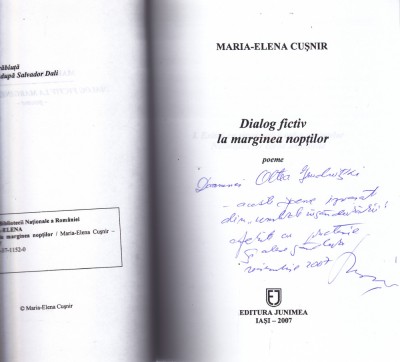 răbiuță
după Salvador Dali
Bibliotecii Naționale a României
-ELENA
la marginea nopților / Maria-Elena Cușnir -
-37-1152-0
© Maria-Elena Cușnir
MARIA-ELENA CUȘNIR
Dialog fictiv
la marginea nopților
poeme
Doamnei Oltea
- aceste poeme
din
oferite cu prietenie
și
noiembrie 2007
EDITURA JUNIMEA
IAȘI – 2007